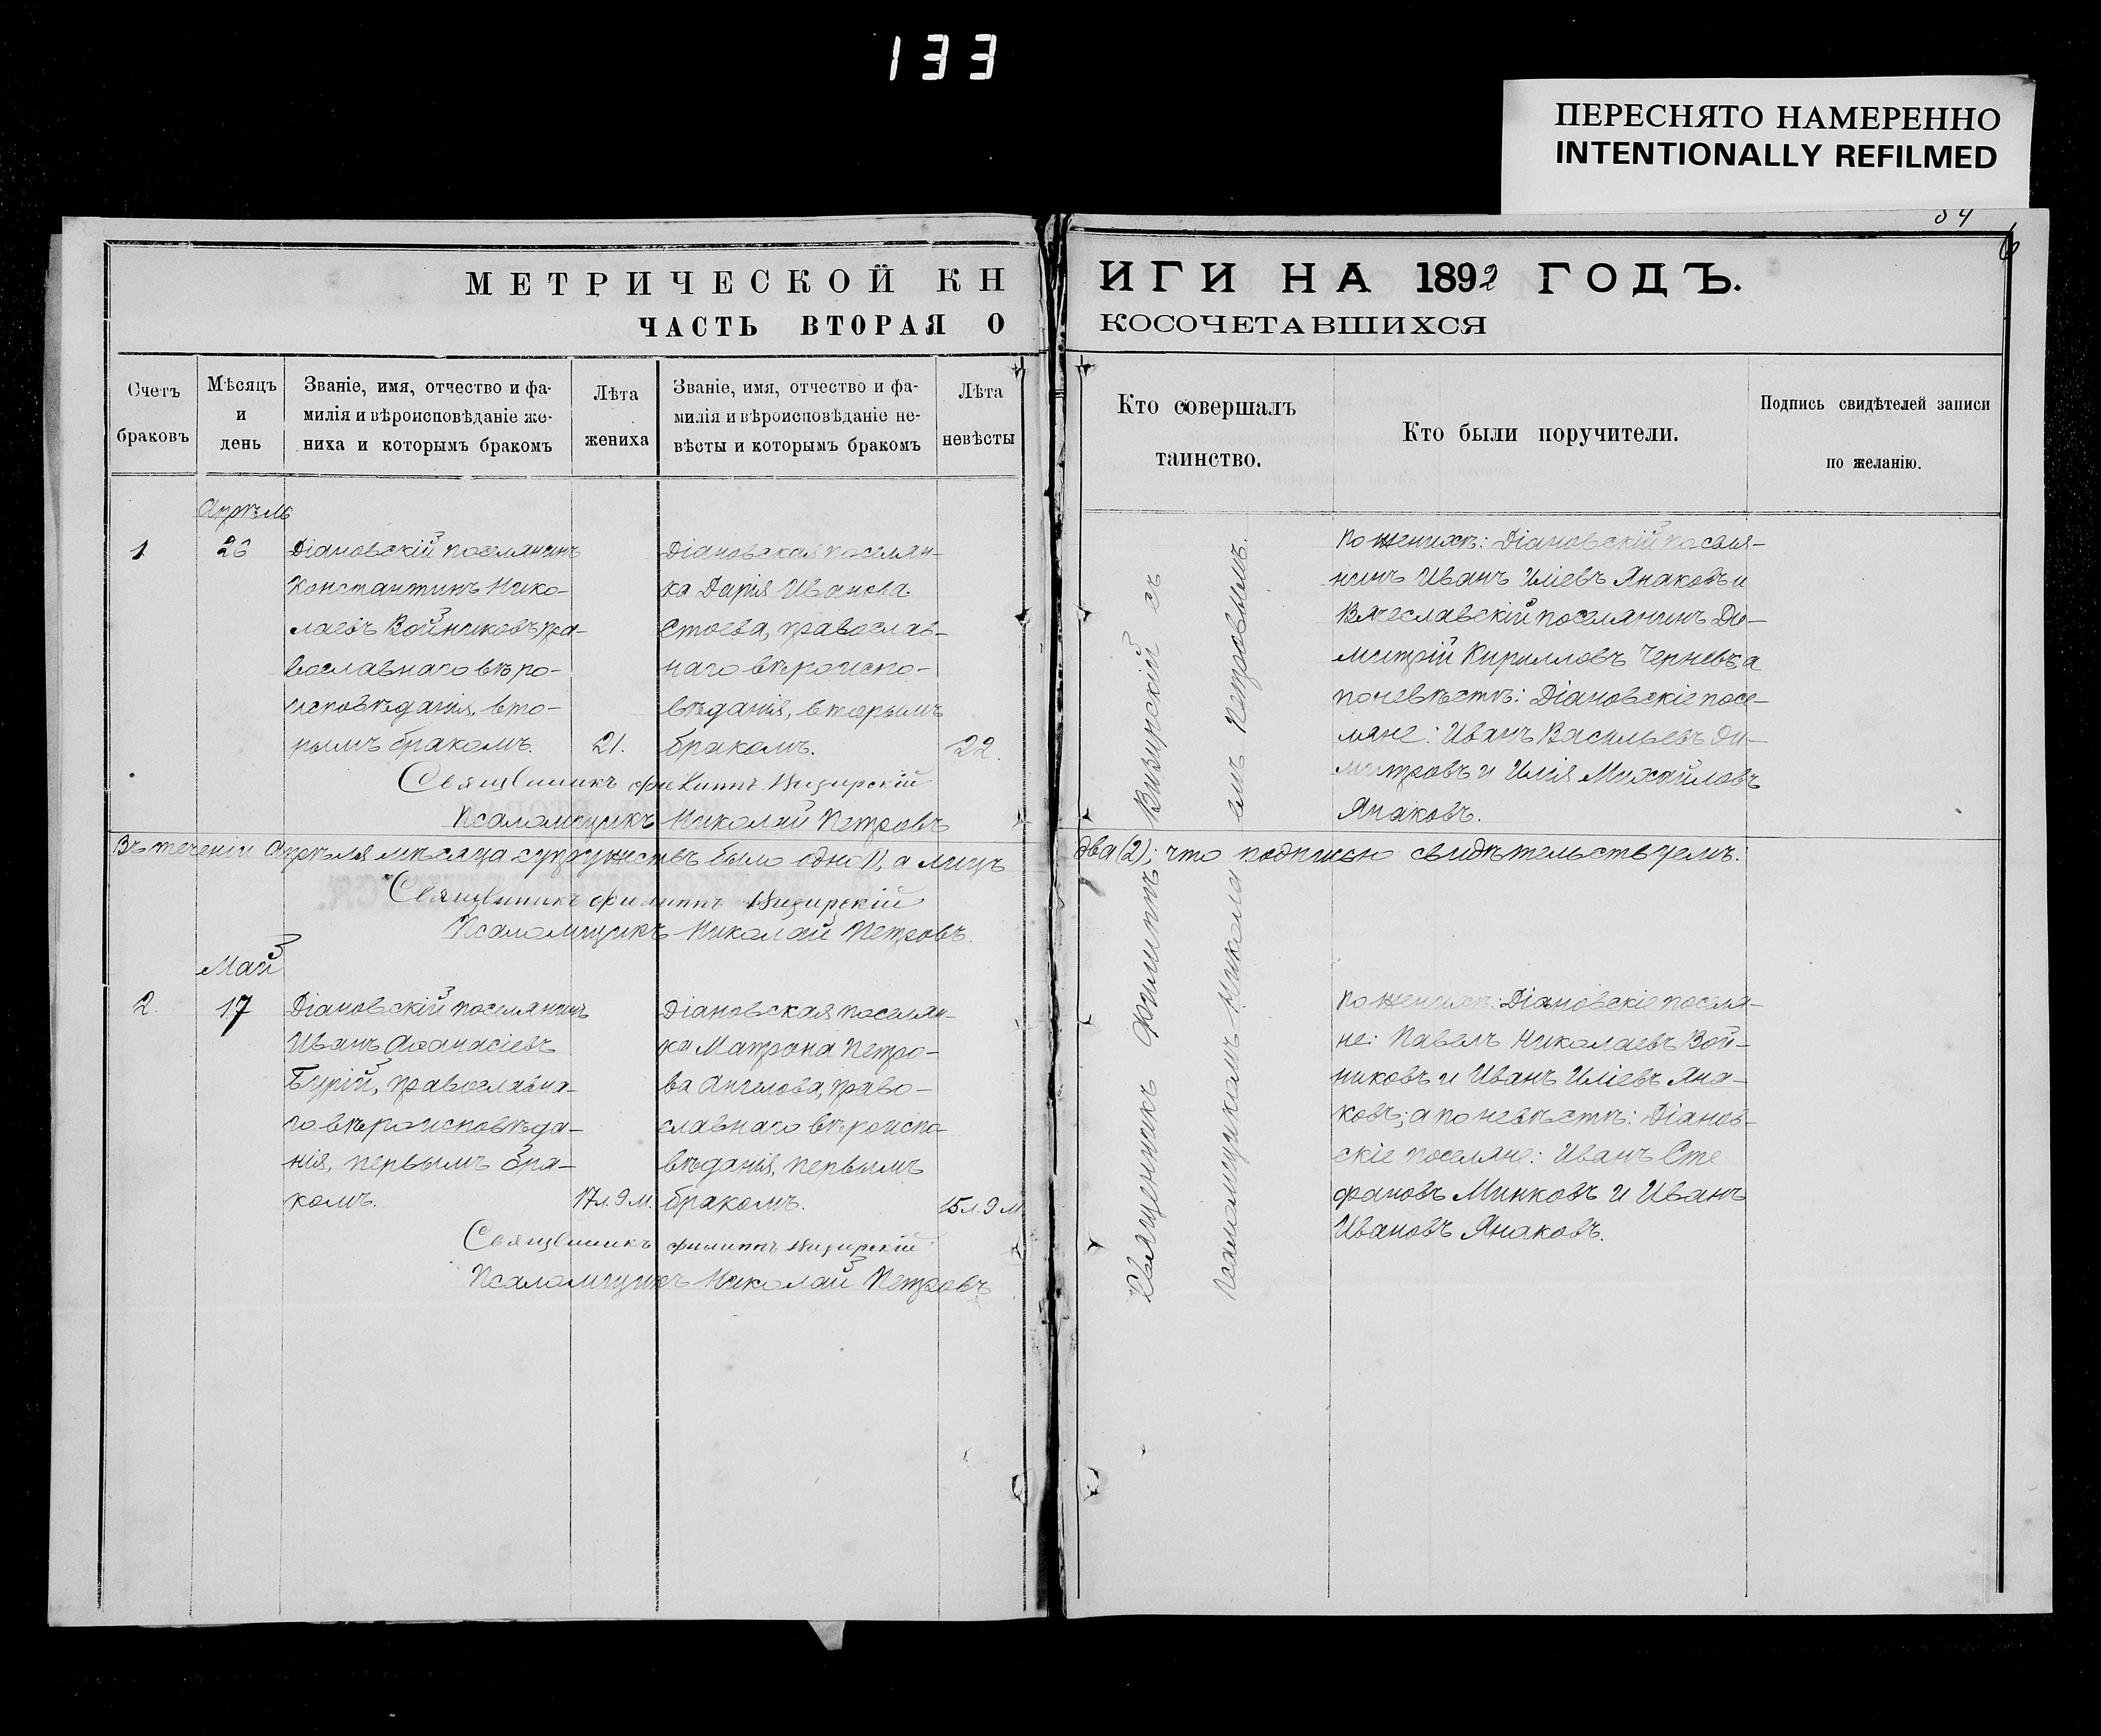 133
ПЕРЕСНЯТО НАМЕРЕННО
INTENTIONALLY REFILMED
МЕТРИЧЕСКОЙ КН
ИГИ НА 1892 ГОДЪ.
ЧАСТЬ ВТОРАЯ О
КОСОЧЕТАВШИХСЯ
Счетъ
браковъ
Мѣсяцъ
и
день
Званіе, имя, отчество и фа-
милія и вѣроисповѣданіе же-
ниха и которымъ бракомъ
Лѣта
жениха
Званіе, имя, отчество и фа-
милія и вѣроисповѣданіе не-
вѣсты и которымъ бракомъ
Лѣта
невѣсты
Кто совершалъ
таинство.
Кто были поручители.
Подпись свидѣтелей записи
по желанію.
Апрѣль
1
26
Діановскій поселянинъ
Константинъ Нико-
лаевъ Войниковъ пра-
вославнаго вѣро-
исповѣданія, вто-
рымъ бракомъ.
21.
Діановская поселян-
ка Дарія Иванова
Стоева, православ-
наго вѣроиспо-
вѣданія, вторымъ
бракомъ.
22.
Священникъ Филиппъ Визирскій
Псаломщикъ Николай Петровъ
По женихѣ: Діановскій поселя-
нинъ Иванъ Иліевъ Янаковъ и
Вячеславскій поселянинъ Ди-
митрій Кирилловъ Черневъ а
по невѣстѣ: Діановскіе посе-
ляне: Иванъ Васильевъ Ди-
митровъ и Илія Михайловъ
Янаковъ.
Въ теченіи Апрѣля мѣсяца супружествъ было одно 1), а лицъ
два (2); что подписью свидѣтельствуемъ.
Священникъ Филиппъ Визирскій
Псаломщикъ Николай Петровъ.
Май
2.
17
Діановскій поселянинъ
Иванъ Аѳанасіевъ
Бурій, православна-
го вѣроисповѣда-
нія, первымъ бра-
комъ.
17 л. 9 м.
Діановская поселян-
ка Матрона Петро-
ва Ангелова, право-
славнаго вѣроиспо-
вѣданія, первымъ
бракомъ.
15 л. 9 м
Священникъ Филиппъ Визирскій
Псаломщикъ Николай Петровъ
Священникъ Филиппъ Визирскій съ
псаломщикомъ Николаемъ Петровымъ.
По женихѣ: Діановскіе поселя-
не: Павелъ Николаевъ Вой-
никовъ и Иванъ Иліевъ Яна-
ковъ; а по невѣстѣ: Діанов-
скіе поселяне: Иванъ Сте
фановъ Минковъ и Иванъ
Ивановъ Янаковъ.